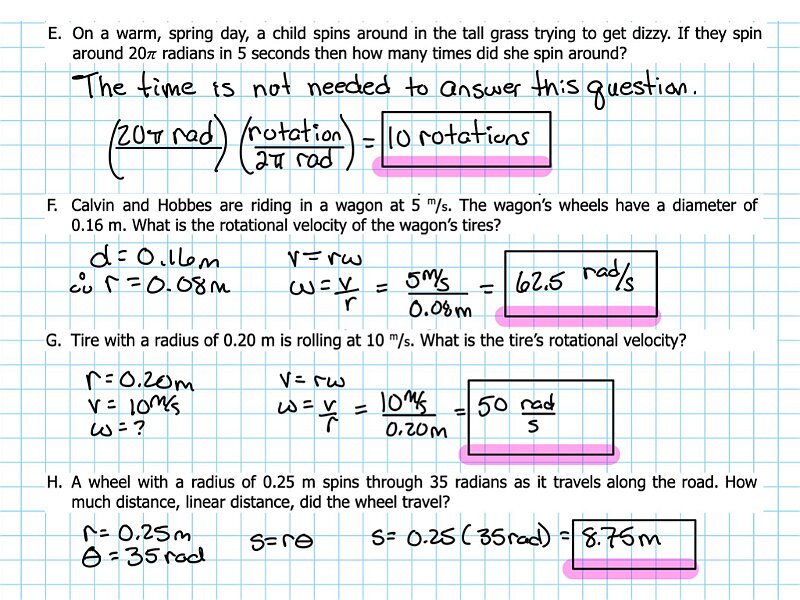 E. On a warm, spring day, a child spins around in the tall grass trying to get dizzy. If they spin
around 20π radians in 5 seconds then how many times did she spin around?
The time is not needed to answer this question.
(20π rad) (rotation / 2π rad) = 10 rotations
F. Calvin and Hobbes are riding in a wagon at 5 m/s. The wagon's wheels have a diameter of
0.16 m. What is the rotational velocity of the wagon's tires?
d = 0.16m v = rω
∴ r = 0.08m ω = v/r = 5 m/s / 0.08m = 62.5 rad/s
G. Tire with a radius of 0.20 m is rolling at 10 m/s. What is the tire's rotational velocity?
r = 0.20m v = rω
v = 10 m/s ω = v/r = 10 m/s / 0.20m = 50 rad/s
ω = ?
H. A wheel with a radius of 0.25 m spins through 35 radians as it travels along the road. How
much distance, linear distance, did the wheel travel?
r = 0.25m s = rθ s = 0.25 (35 rad) = 8.75m
θ = 35 rad